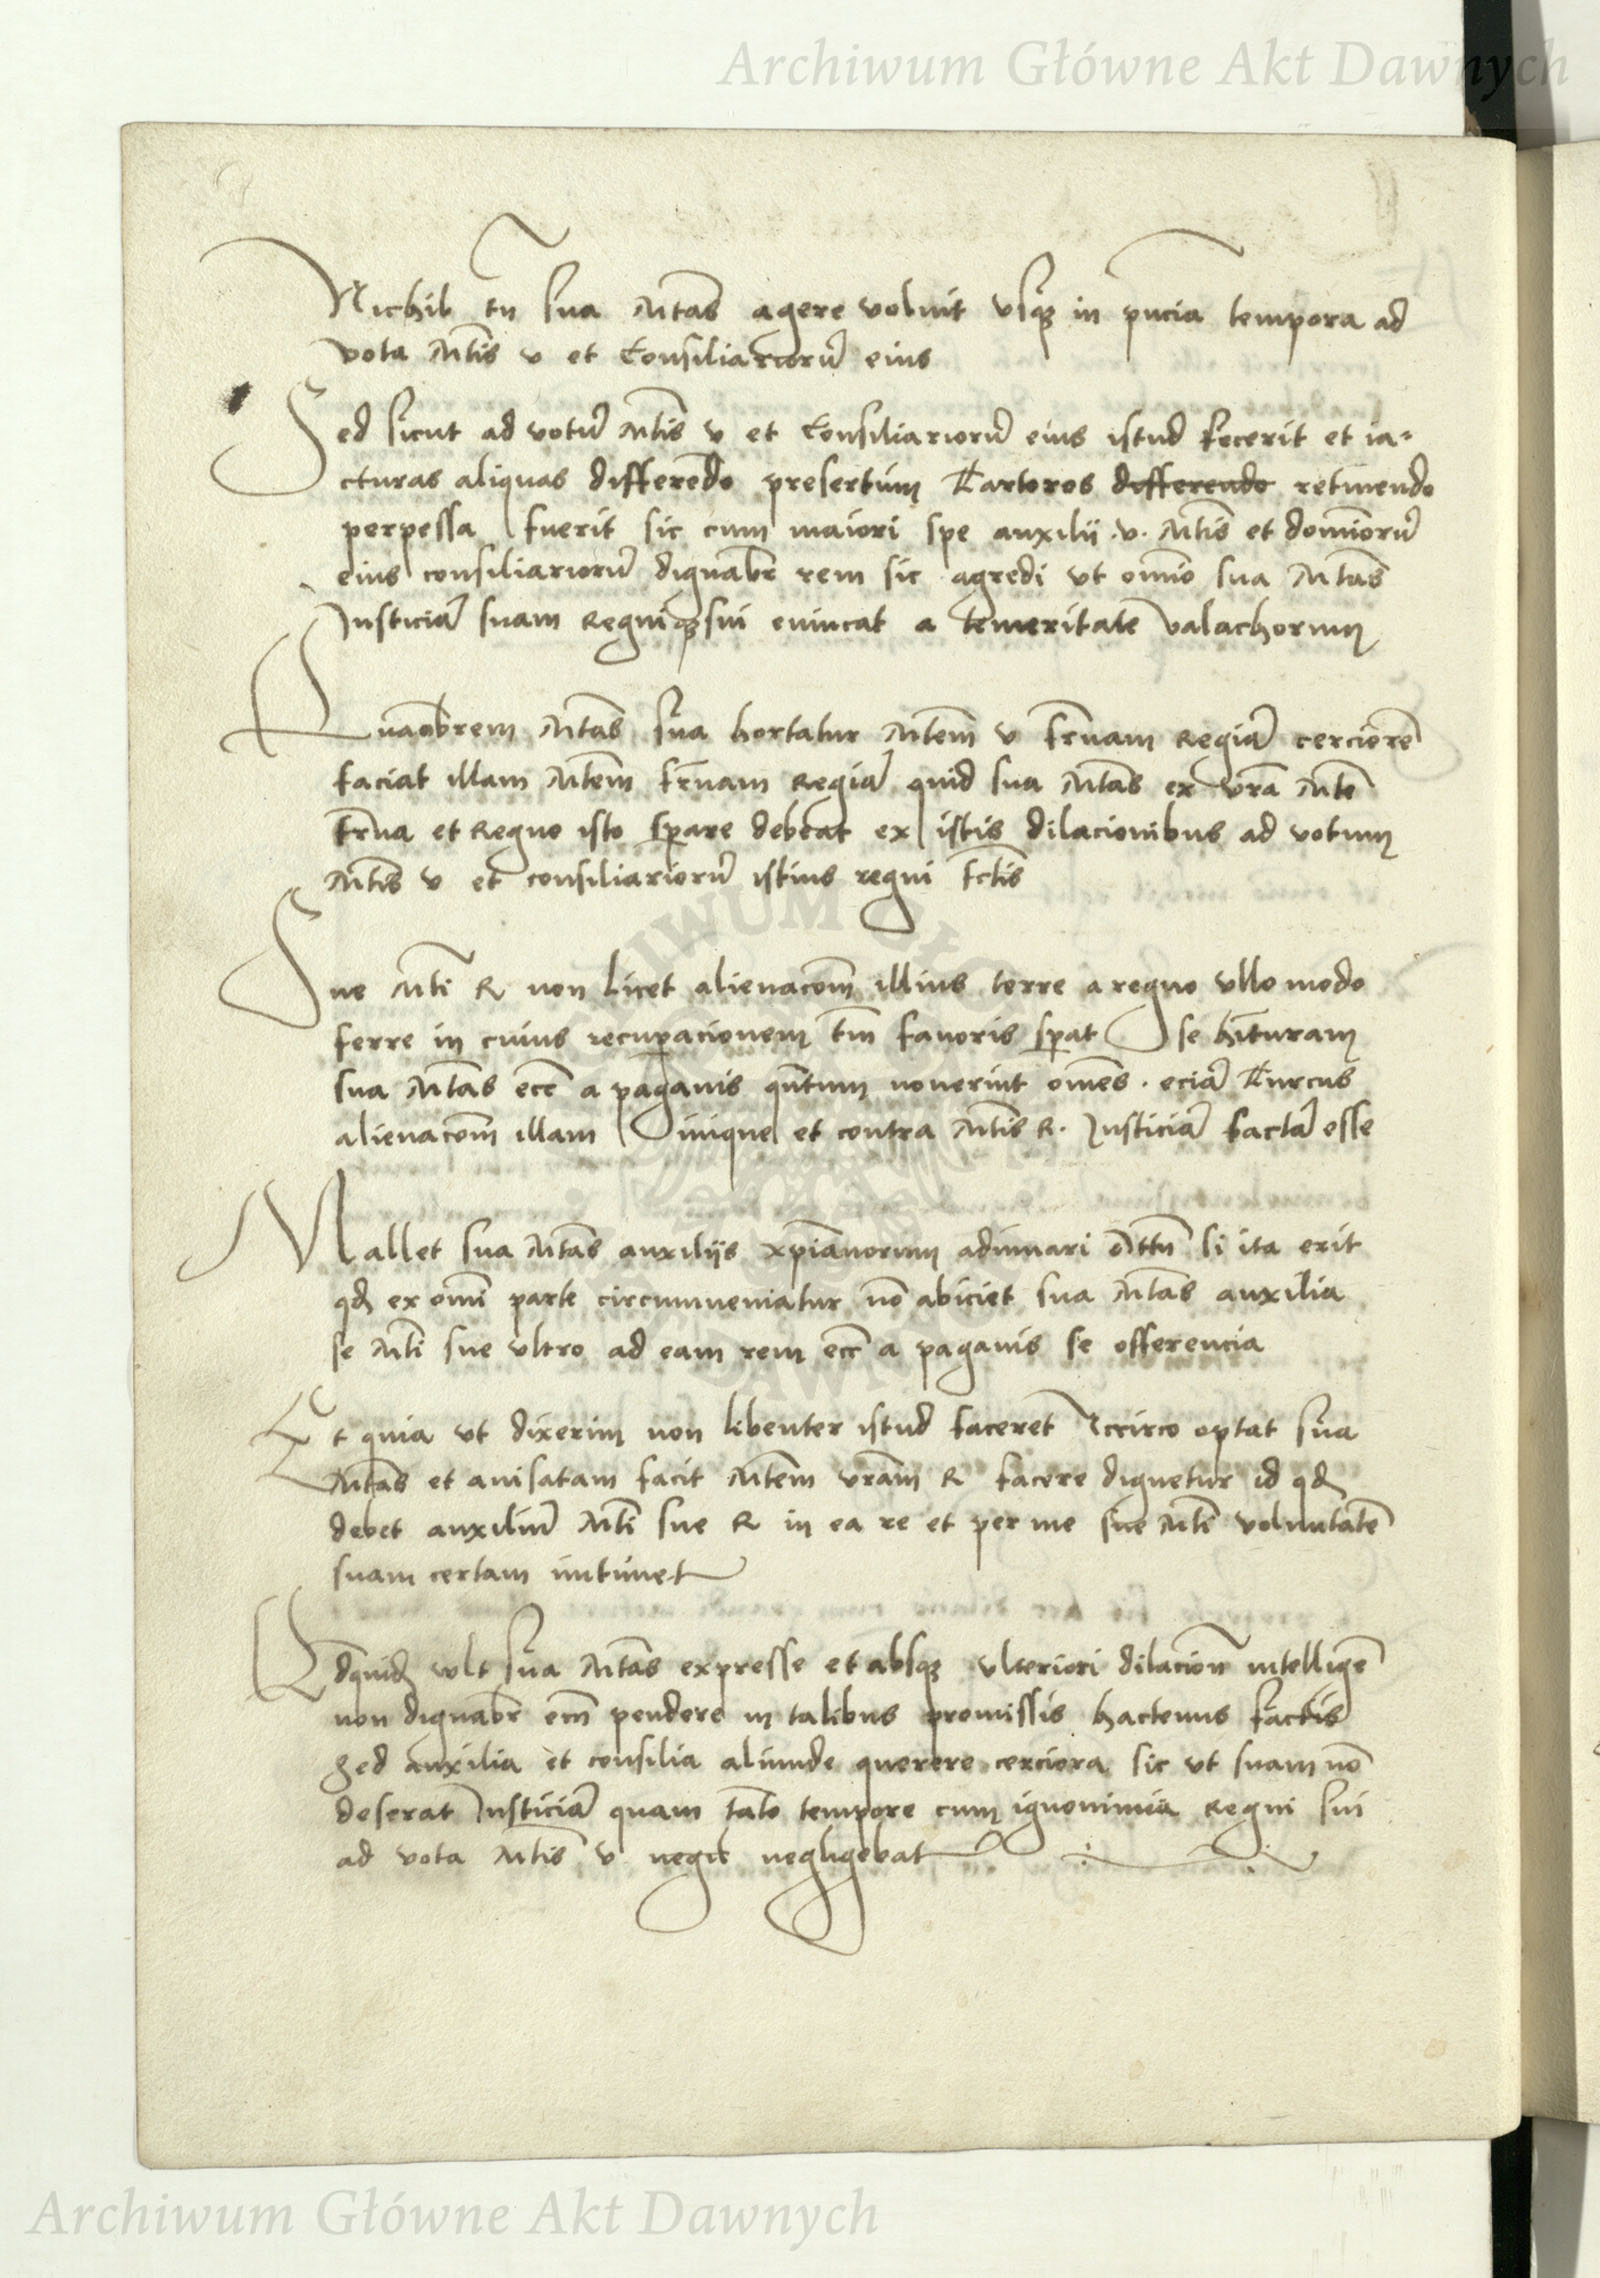 Archiwum Główne Akt Dawnych
Nichil tn̄ sua Mtas agere voluit vsq in pn̄cia tempora ad
vota Mtis v et Consiliariorū eius
Sed sicut ad votū Mtis v et Consiliariorū eius istud fecerit et ia=
cturas aliquas differēdo presertim Tartoros differendo retinendo
perpessa fuerit sic cum maiori spe auxilii .v. Mtis et dominorū
eius consiliariorū dignabr̄ rem sic agredi vt om̄io sua Mtas
Iusticiā suam Regniq sui euincat a temeritate valachorum
Quāobrem Mtas sua hortatur Mtem v fr̄nam Regiā cerciorē
faciat illam Mtem fr̄nam Regiā quid sua Mtas ex vrā Mte
fr̄na et Regno isto sꝑare debeat ex istis dilacionibus ad votum
Mtis v et consiliariorū istius regni fctis
Sue Mti R non licet alienacōm illius terre a regno vllo modo
ferre in cuius recuꝑacionem tm̄ fauoris sꝑat se hīturam
sua Mtas ecc̄ a paganis qn̄tum nouerint om̄es . eciā Turcus
alienacōm illam inique et contra Mtis R. Iusticiā factā esse
Mallet sua Mtas auxilijs xpīanorum adiuuari Attn̄ si ita erit
qd ex om̄i parte circumueniatur nō abiciet sua Mtas auxilia
se Mti sue vltro ad eam rem ecc̄ a paganis se offerencia
Et quia vt dixerim non libenter istud faceret Iccirco optat sua
Mtas et auisatam facit Mtem vrām R facere dignetur id qd
debet auxiliū Mti sue R in ea re et per me sue Mti voluntatē
suam certam intimet
Qdquid vult sua Mtas expresse et absq vlteriori dilacion̄ intelligē
non dignabr̄ ecn̄ pendere in talibus promissis hactenus factis
Sed auxilia et consilia aliunde querere cerciora sic vt suam nō
deserat Iusticiā quam tāto tempore cum ignominia Regni sui
ad vota Mtis v negligebat
Archiwum Główne Akt Dawnych